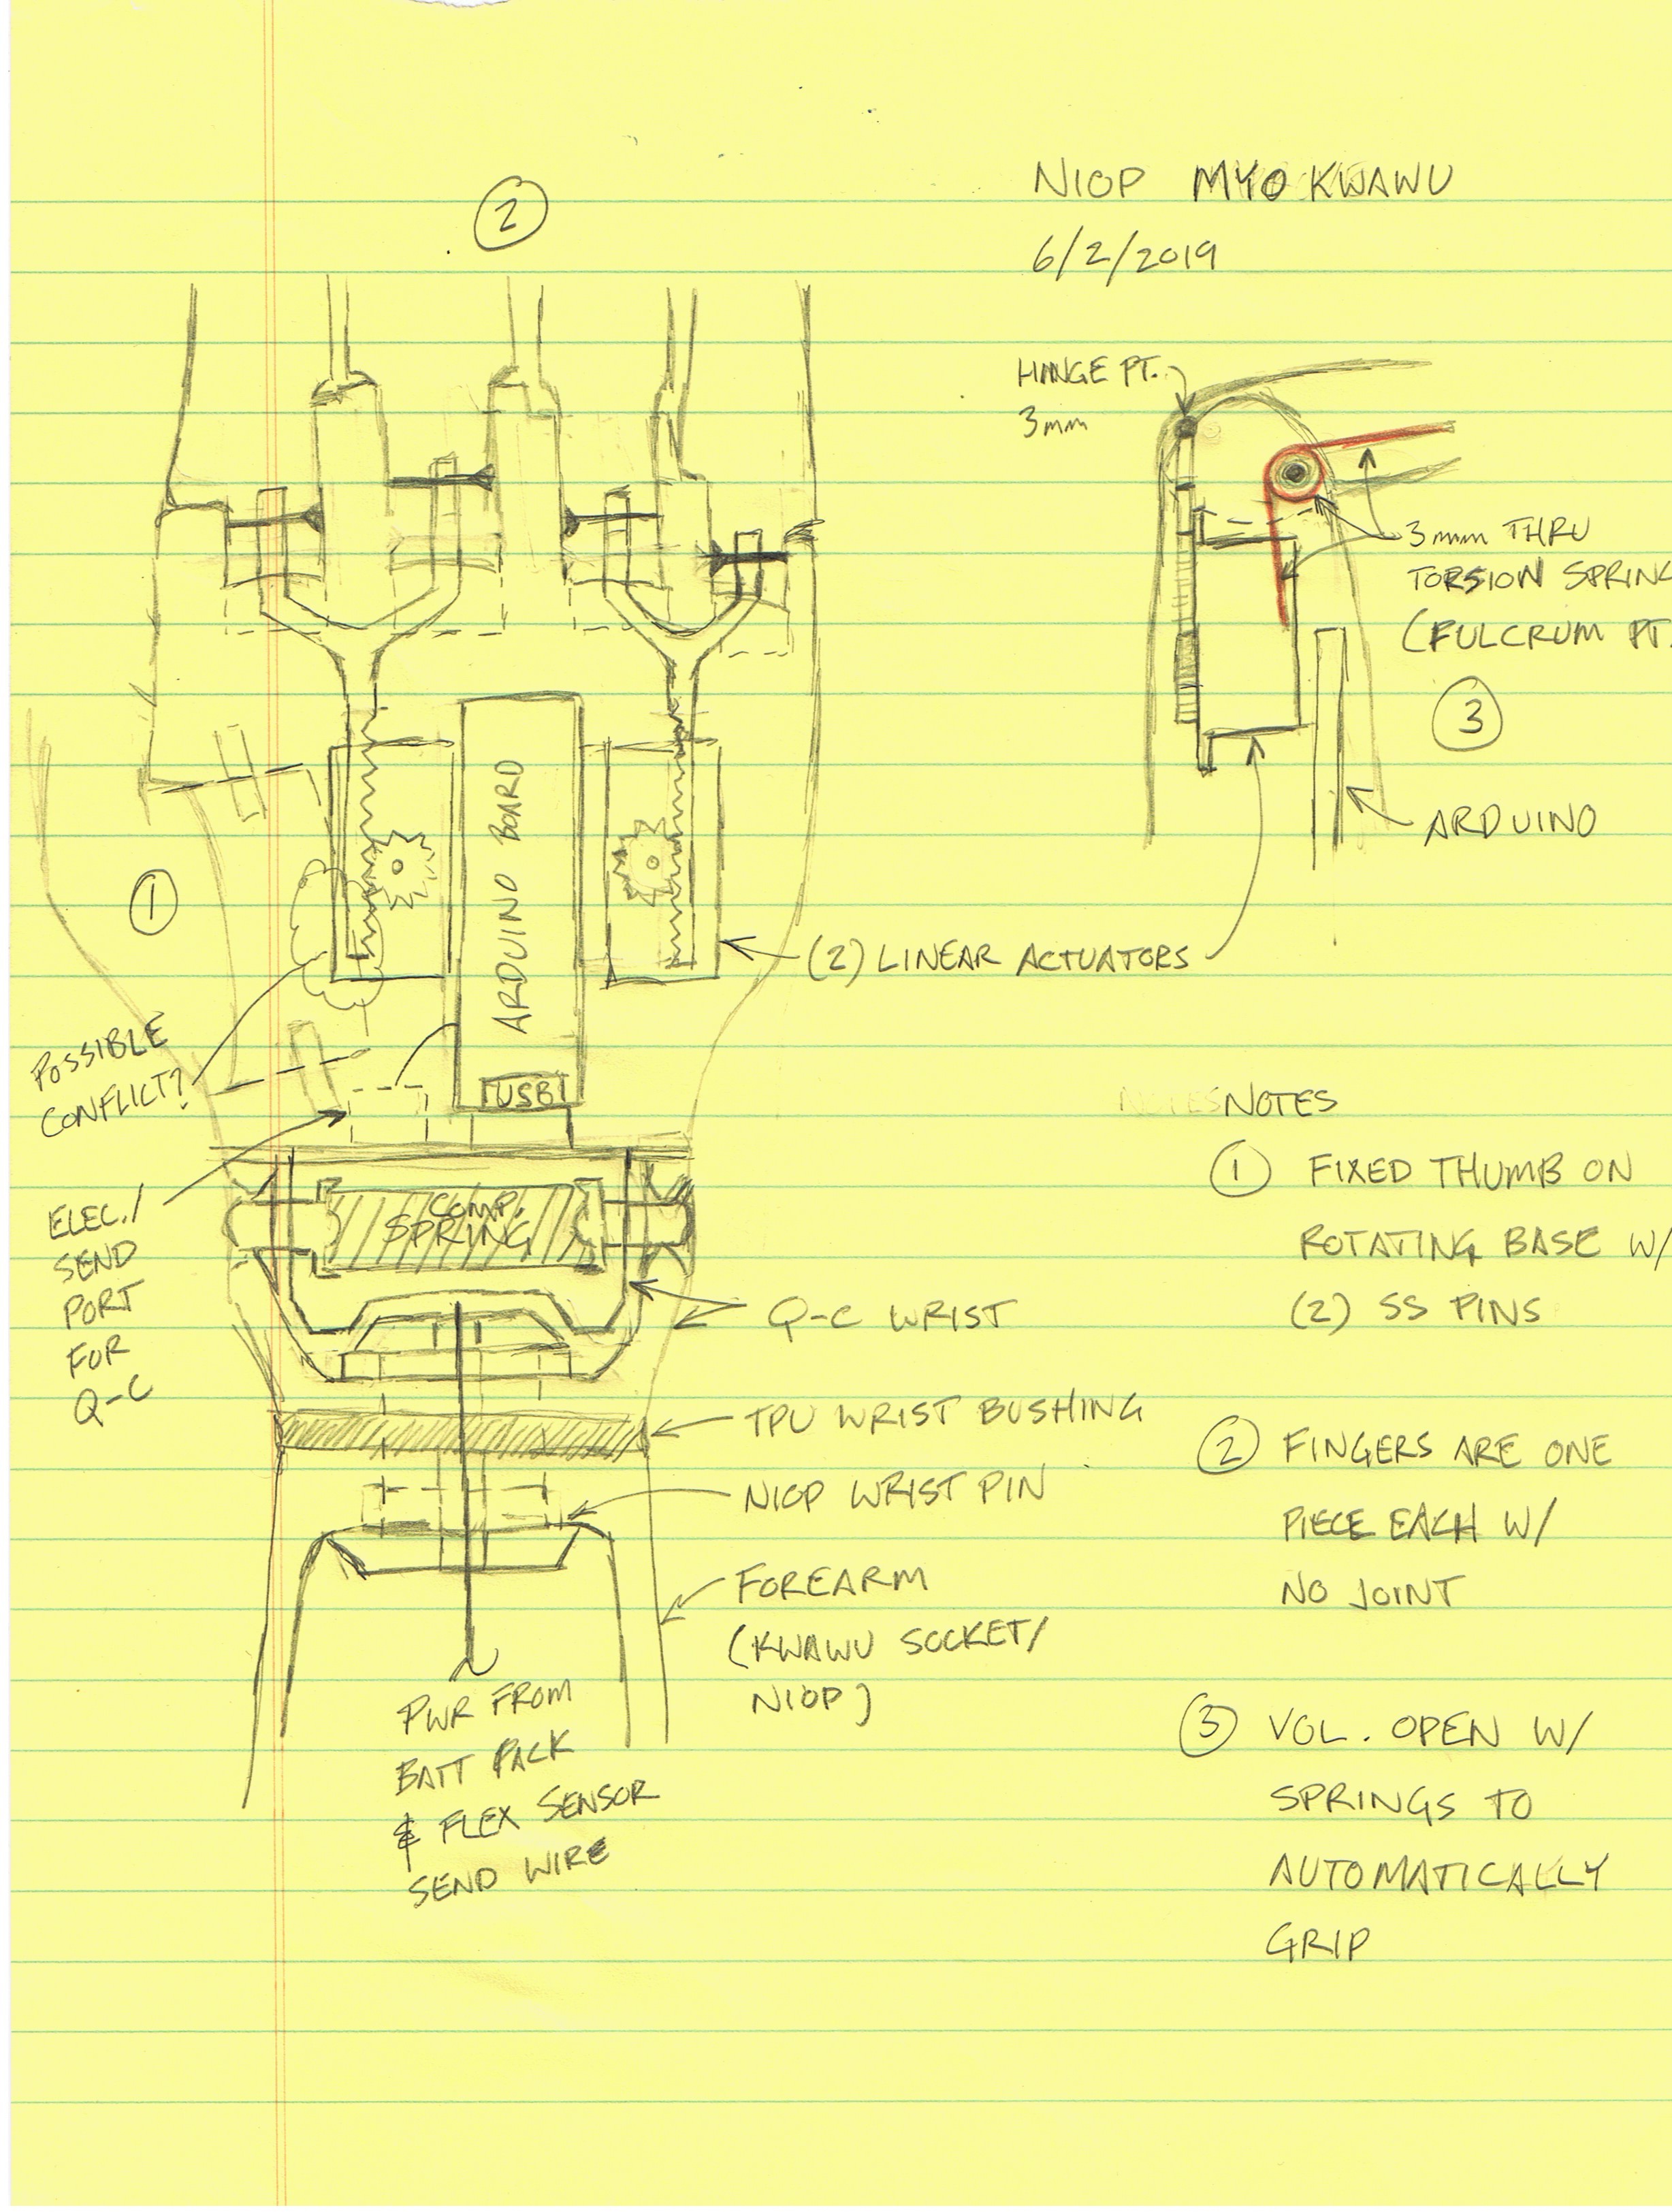 2
NIOP MYO KWAWU
6/2/2019
HINGE PT.
3mm
3mm THRU
TORSION SPRING
(FULCRUM PT.
3
ARDUINO
1
ARDUINO BOARD
(2) LINEAR ACTUATORS
POSSIBLE
CONFLICT?
USB
ELEC./
SEND
PORT
FOR
Q-C
COMP.
SPRING
Q-C WRIST
TPU WRIST BUSHING
NIOP WRIST PIN
FOREARM
(KWAWU SOCKET/
NIOP)
PWR FROM
BATT PACK
& FLEX SENSOR
SEND WIRE
NOTES NOTES
1 FIXED THUMB ON
ROTATING BASE W/
(2) SS PINS
2 FINGERS ARE ONE
PIECE EACH W/
NO JOINT
3 VOL. OPEN W/
SPRINGS TO
AUTOMATICALLY
GRIP